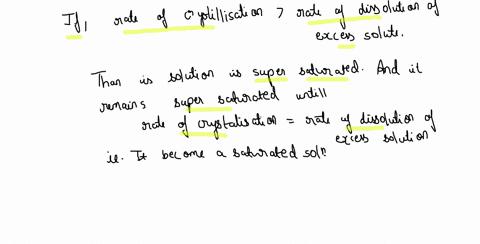 If, rate of crystillisation > rate of dissolution of
excess solute.
Than is solution is super saturated. And it
remains super saturated untill
rate of crystalisation = rate of dissolution of
excess solution
ie. It become a saturated soln